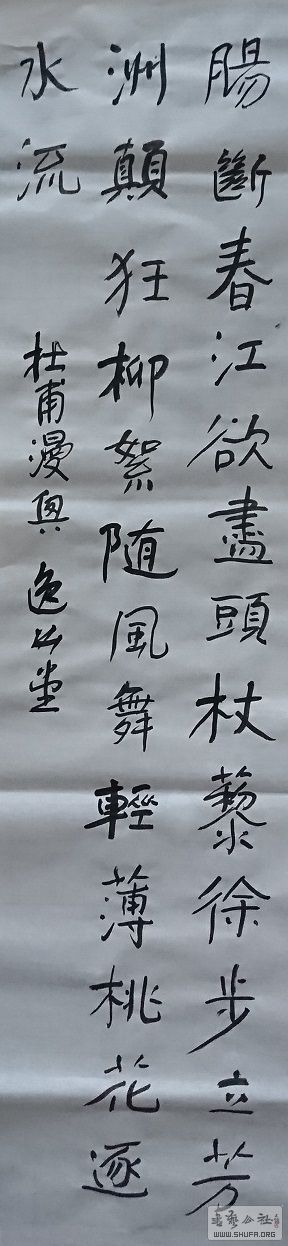 腸斷春江欲盡頭杖藜徐步立芳
洲顛狂柳絮随風舞輕薄桃花逐
水流
杜甫漫興逸公堂
書藝公社
WWW.SHUFA.ORG